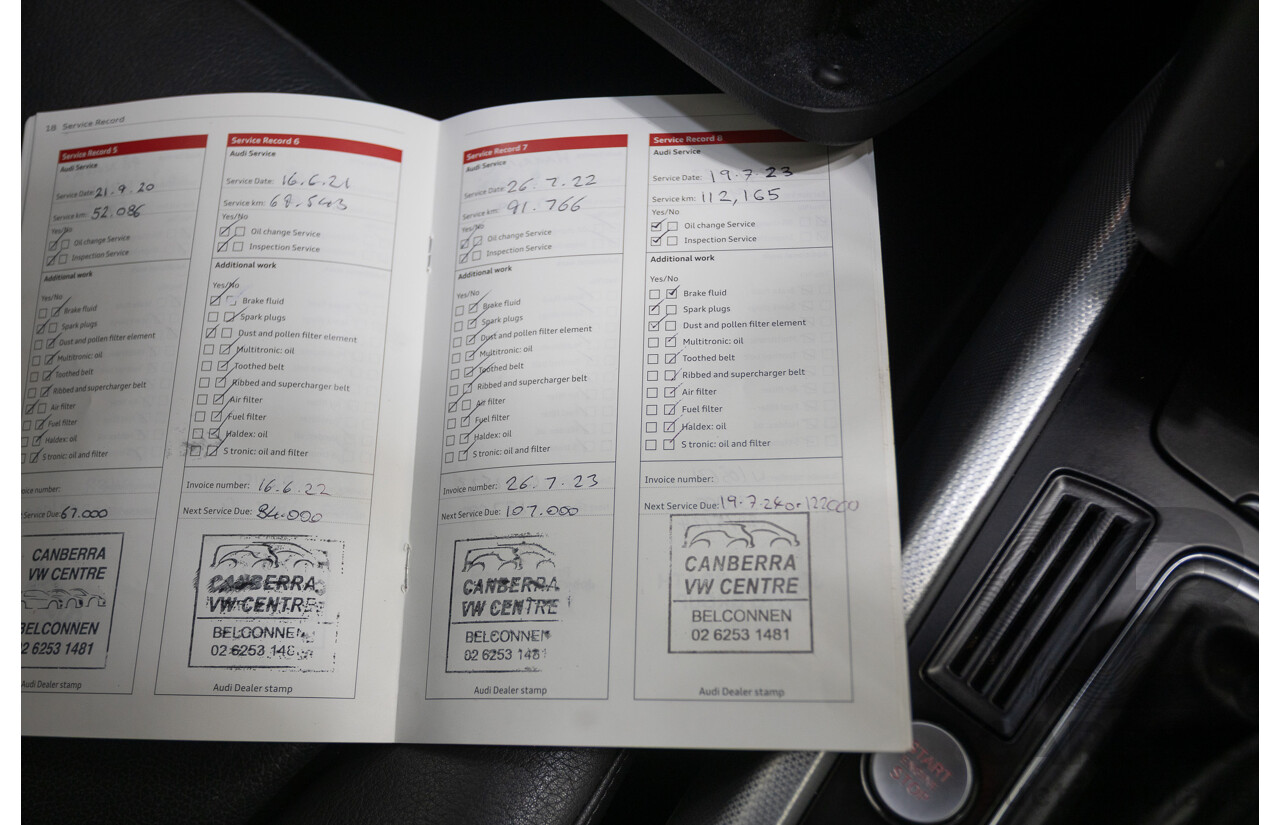 18 Service Record
Service Record 5
Audi Service
Service Date: 21.9.20
Service km: 52.086
Yes/No
Oil change Service
Inspection Service
Additional work
Yes/No
Brake fluid
Spark plugs
Dust and pollen filter element
Multitronic: oil
Toothed belt
Ribbed and supercharger belt
Air filter
Fuel filter
Haldex: oil
S tronic: oil and filter
nvoice number:
Service Due: 67.000
CANBERRA
VW CENTRE
BELCONNEN
2 6253 1481
Audi Dealer stamp
Service Record 6
Audi Service
Service Date: 16.6.21
Service km: 68.543
Yes/No
Oil change Service
Inspection Service
Additional work
Yes/No
Brake fluid
Spark plugs
Dust and pollen filter element
Multitronic: oil
Toothed belt
Ribbed and supercharger belt
Air filter
Fuel filter
Haldex: oil
S tronic: oil and filter
Invoice number: 16.6.22
Next Service Due: 84.000
CANBERRA
VW CENTRE
BELCONNEN
02 6253 148
Audi Dealer stamp
Service Record 7
Audi Service
Service Date: 26.7.22
Service km: 91.766
Yes/No
Oil change Service
Inspection Service
Additional work
Yes/No
Brake fluid
Spark plugs
Dust and pollen filter element
Multitronic: oil
Toothed belt
Ribbed and supercharger belt
Air filter
Fuel filter
Haldex: oil
S tronic: oil and filter
Invoice number: 26.7.23
Next Service Due: 107.000
CANBERRA
VW CENTRE
BELCONNEN
02 6253 1481
Audi Dealer stamp
Service Record 8
Audi Service
Service Date: 19.7.23
Service km: 112,165
Yes/No
Oil change Service
Inspection Service
Additional work
Yes/No
Brake fluid
Spark plugs
Dust and pollen filter element
Multitronic: oil
Toothed belt
Ribbed and supercharger belt
Air filter
Fuel filter
Haldex: oil
S tronic: oil and filter
Invoice number:
Next Service Due: 19.7.24 or 122000
CANBERRA
VW CENTRE
BELCONNEN
02 6253 1481
Audi Dealer stamp
START
ENGINE
STOP